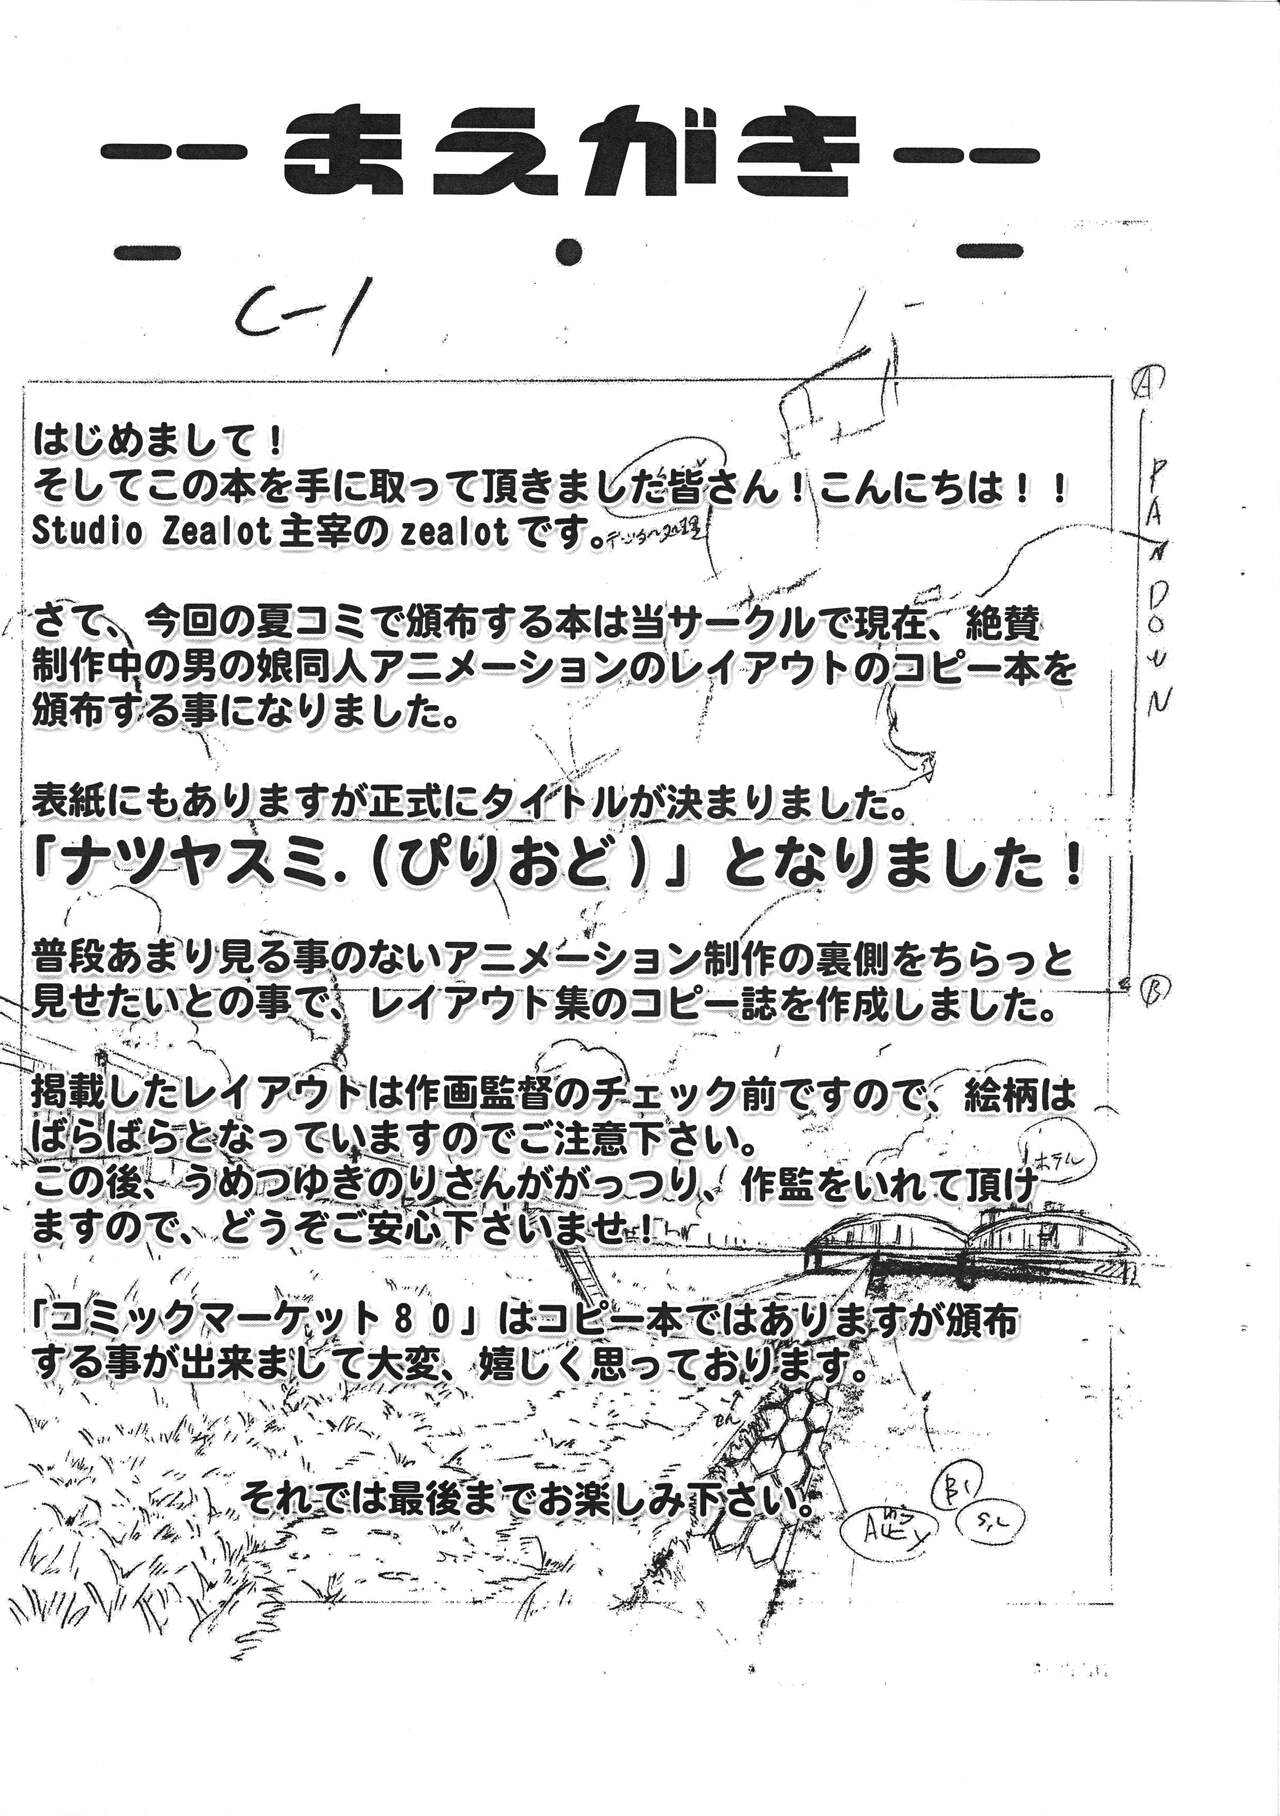 --まえがき--
- ・ -
C-1
はじめまして！
そしてこの本を手に取って頂きました皆さん！こんにちは！！
Studio Zealot主宰のzealotです。
さて、今回の夏コミで頒布する本は当サークルで現在、絶賛
制作中の男の娘同人アニメーションのレイアウトのコピー本を
頒布する事になりました。
表紙にもありますが正式にタイトルが決まりました。
「ナツヤスミ.（ぴりおど）」となりました！
普段あまり見る事のないアニメーション制作の裏側をちらっと
見せたいとの事で、レイアウト集のコピー誌を作成しました。
掲載したレイアウトは作画監督のチェック前ですので、絵柄は
ばらばらとなっていますのでご注意下さい。
この後、うめつゆきのりさんががっつり、作監をいれて頂け
ますので、どうぞご安心下さいませ！
「コミックマーケット８０」はコピー本ではありますが頒布
する事が出来まして大変、嬉しく思っております。
それでは最後までお楽しみ下さい。
A
PANDOWN
B
ホテル
B1
S,L